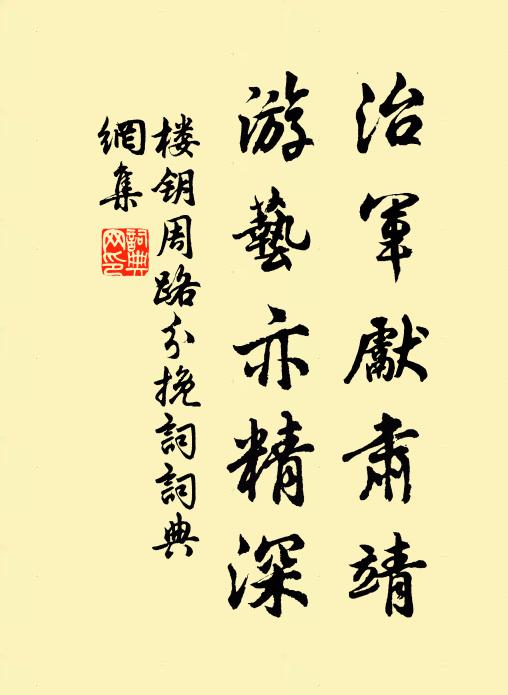 治軍獻肅靖
游藝亦精深
楼钥周路分挽詞詞典
網集
詞典网印